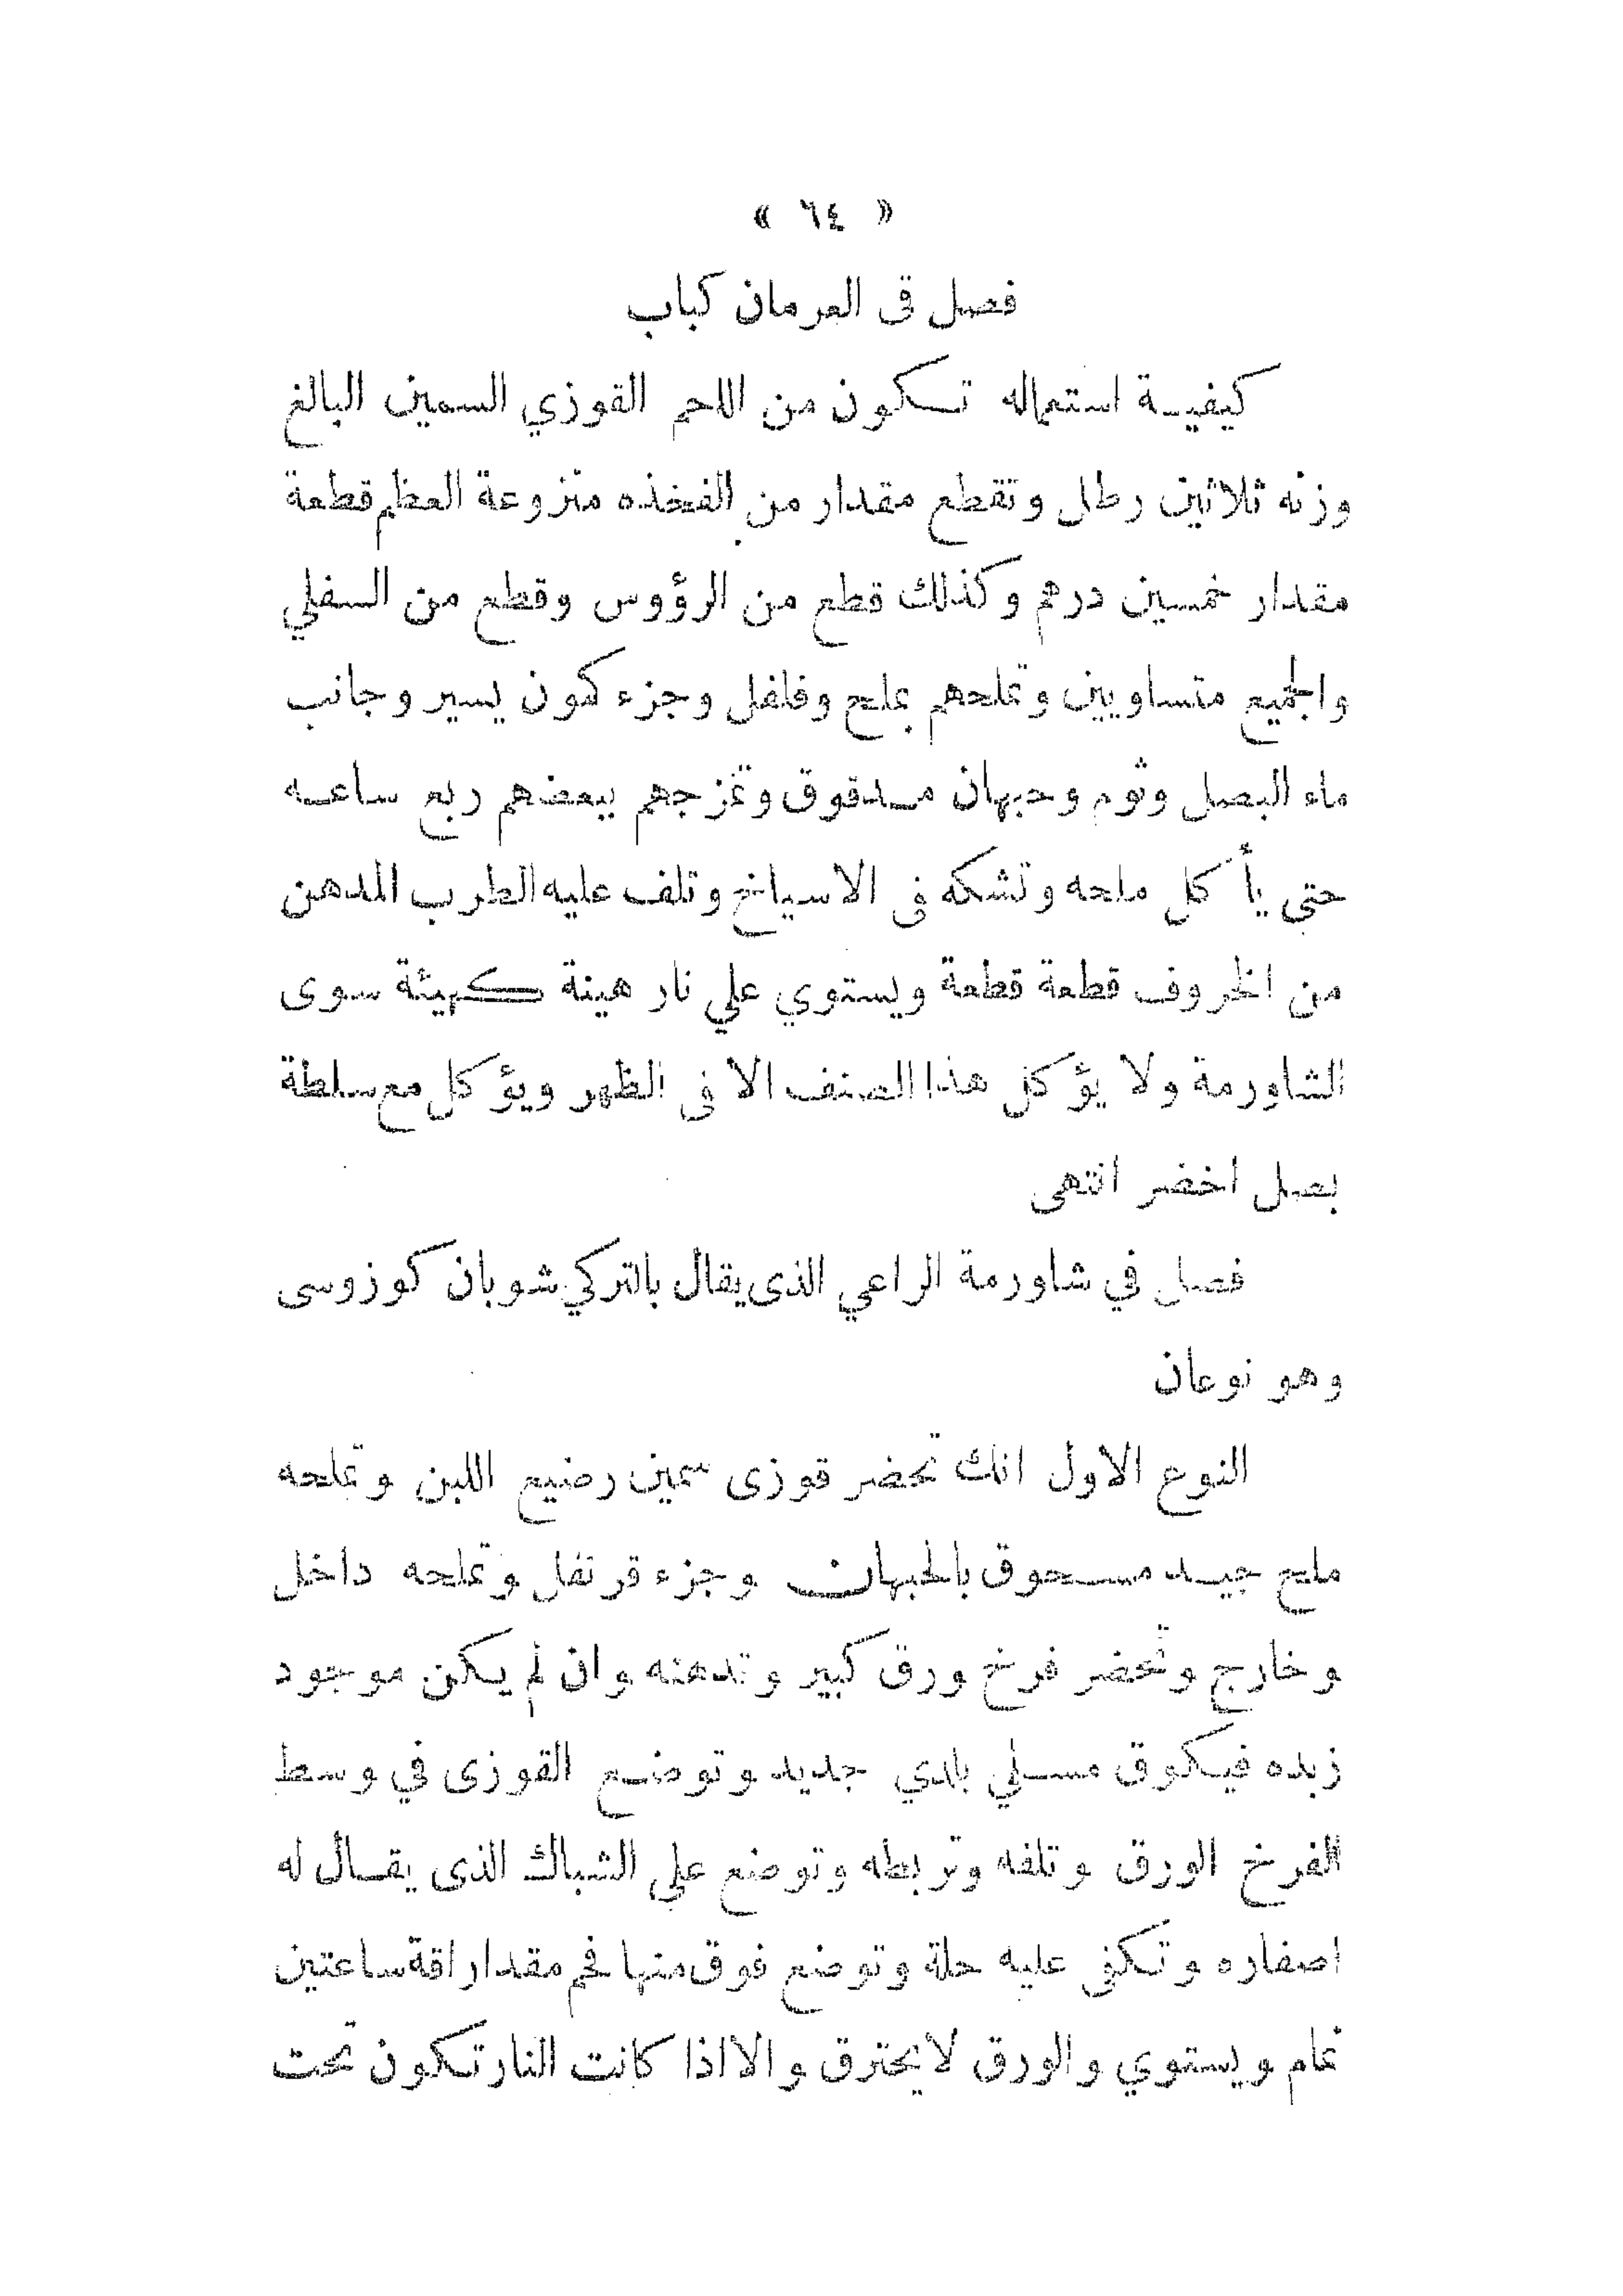 « ٦٤ »
فصل قى العرمان كباب
كيفية استعماله تكون من اللحم القوزي السمين البالغ
وزنه ثلاثين رطل وتقطع مقدار من الفخذه منزوعة العظم قطعة
مقدار خمسين درهم وكذلك قطع من الرؤوس وقطع من السفلي
والجميع متساويين وتملحهم بملح وفلفل وجزء كمون يسير وجانب
ماء البصل وثوم وحبهان مدقوق وتمزجهم ببعضهم ربع ساعه
حتى يأكل ملحه وتشكه فى الاسياخ وتلف عليه الطرب المدهن
من الخروف قطعة قطعة ويستوي علي نار هينة كهيئة سوى
الشاورمة ولا يؤكل هذا الصنف الا فى الظهر ويؤكل مع سلطة
بصل اخضر انتهى
فصل في شاورمة الراعي الذى يقال بالتركي شوبان كوزوسى
وهو نوعان
النوع الاول انك تحضر قوزى سمين رضيع اللبن وتملحه
ملح جيد مسحوق بالحبهان وجزء قرنفل وتملحه داخل
وخارج وتحضر فرخ ورق كبير وتدهنه وان لم يكن موجود
زبده فيكوق مسلي بلدي جديد وتوضع القوزى في وسط
الفرخ الورق وتلفه وتربطه وتوضع علي الشباك الذى يقال له
اصفاره وتكفى عليه حلة وتوضع فوق منها فحم مقدار اقة ساعتين
تمام ويستوي والورق لا يحترق والا اذا كانت النار تكون تحت